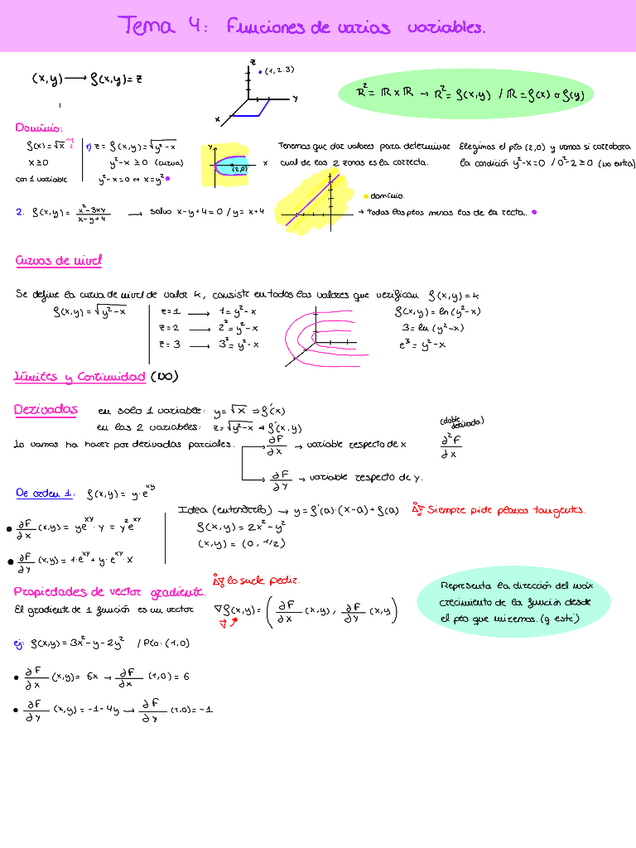 Tema 4: Funciones de varias variables.
(x,y) → f(x,y) = z
• (1,2,3)
ℝ² = ℝ x ℝ → ℝ² = f(x,y) / ℝ = f(x) o f(y)
Dominio:
f(x) = √x
x ≥ 0
con 1 variable
1) z = f(x,y) = √y² - x
y² - x ≥ 0 (curva)
y² - x = 0 ↔ x = y²
y
x
(2,0)
Tenemos que dar valores para determinar
cual de las 2 zonas es la correcta.
Elegimos el pto (2,0) y vemos si corrobora
la condición y² - x = 0 / 0² - 2 ≥ 0 (no entra)
2. f(x,y) = x² - 3xy / x - y + 4 → salvo x - y + 4 = 0 / y = x + 4
• dominio.
→ todos los ptos menos los de la recta.
Curvas de nivel
Se define la curva de nivel de valor k, consiste en todos los valores que verifican f(x,y) = k
f(x,y) = √y² - x
z = 1 → 1 = y² - x
z = 2 → 2² = y² - x
z = 3 → 3² = y² - x
f(x,y) = ln (y² - x)
3 = ln (y² - x)
e³ = y² - x
Límites y Continuidad (NO)
Derivadas en solo 1 variable: y = √x ⇒ f'(x)
en las 2 variables: z = √y² - x ⇒ f'(x,y)
Lo vamos ha hacer por derivadas parciales.
∂F/∂x → variable respecto de x
∂F/∂y → variable respecto de y.
(doble derivada)
∂²F/∂x
De orden 1: f(x,y) = y·e^xy
• ∂F/∂x (x,y) = ye^xy · y = y²e^xy
• ∂F/∂y (x,y) = 1·e^xy + y·e^xy · x
Idea (entenderlo) → y = f'(a)·(x-a) + f(a)
Siempre pide planos tangentes.
f(x,y) = 2x² - y²
(x,y) = (0, 1/2)
Propiedades de vector gradiente.
lo suele pedir.
El gradiente de 1 función es un vector
∇f(x,y) = (∂F/∂x (x,y), ∂F/∂y (x,y)
Representa la dirección del máx
crecimiento de la función desde
el pto que miremos. (q esté)
ej: f(x,y) = 3x² - y - 2y² / Pto: (1,0)
• ∂F/∂x (x,y) = 6x → ∂F/∂x (1,0) = 6
• ∂F/∂y (x,y) = -1 - 4y → ∂F/∂y (1,0) = -1